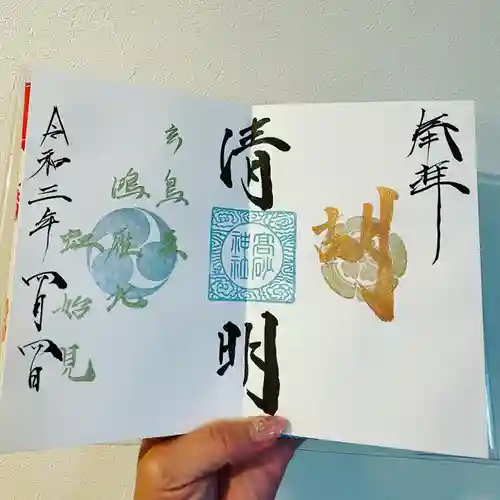 奉拝
胡
清明
高砂神社
玄鳥至
鴻雁北
虹始見
令和三年四月四日